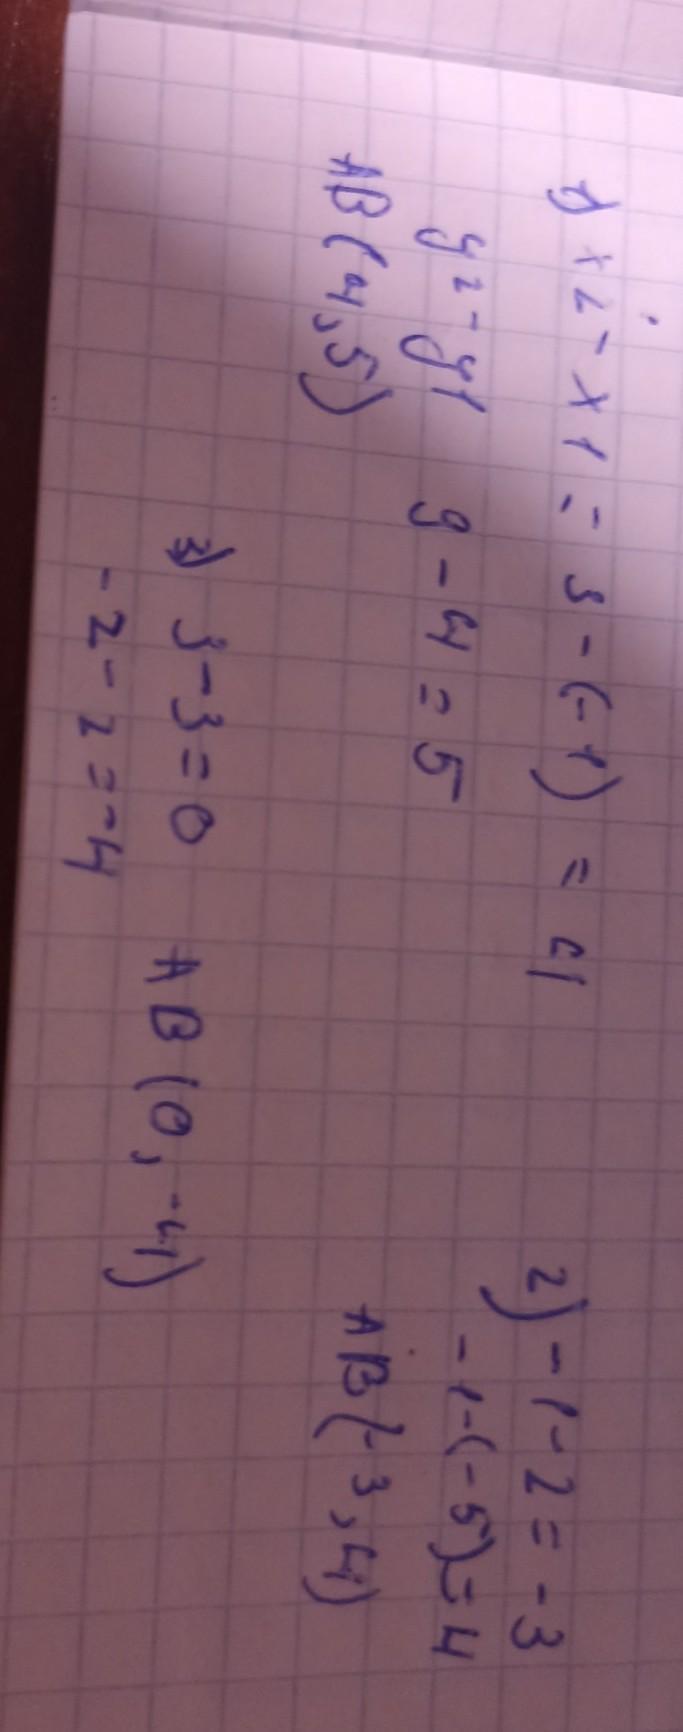 1) x2 - x1 = 3 - (-1) = 4
y2 - y1 9 - 4 = 5
AB (4, 5)
2) -1 - 2 = -3
-1 - (-5) = 4
AB (-3, 4)
3) 3 - 3 = 0
-2 - 2 = -4
AB (0, -4)